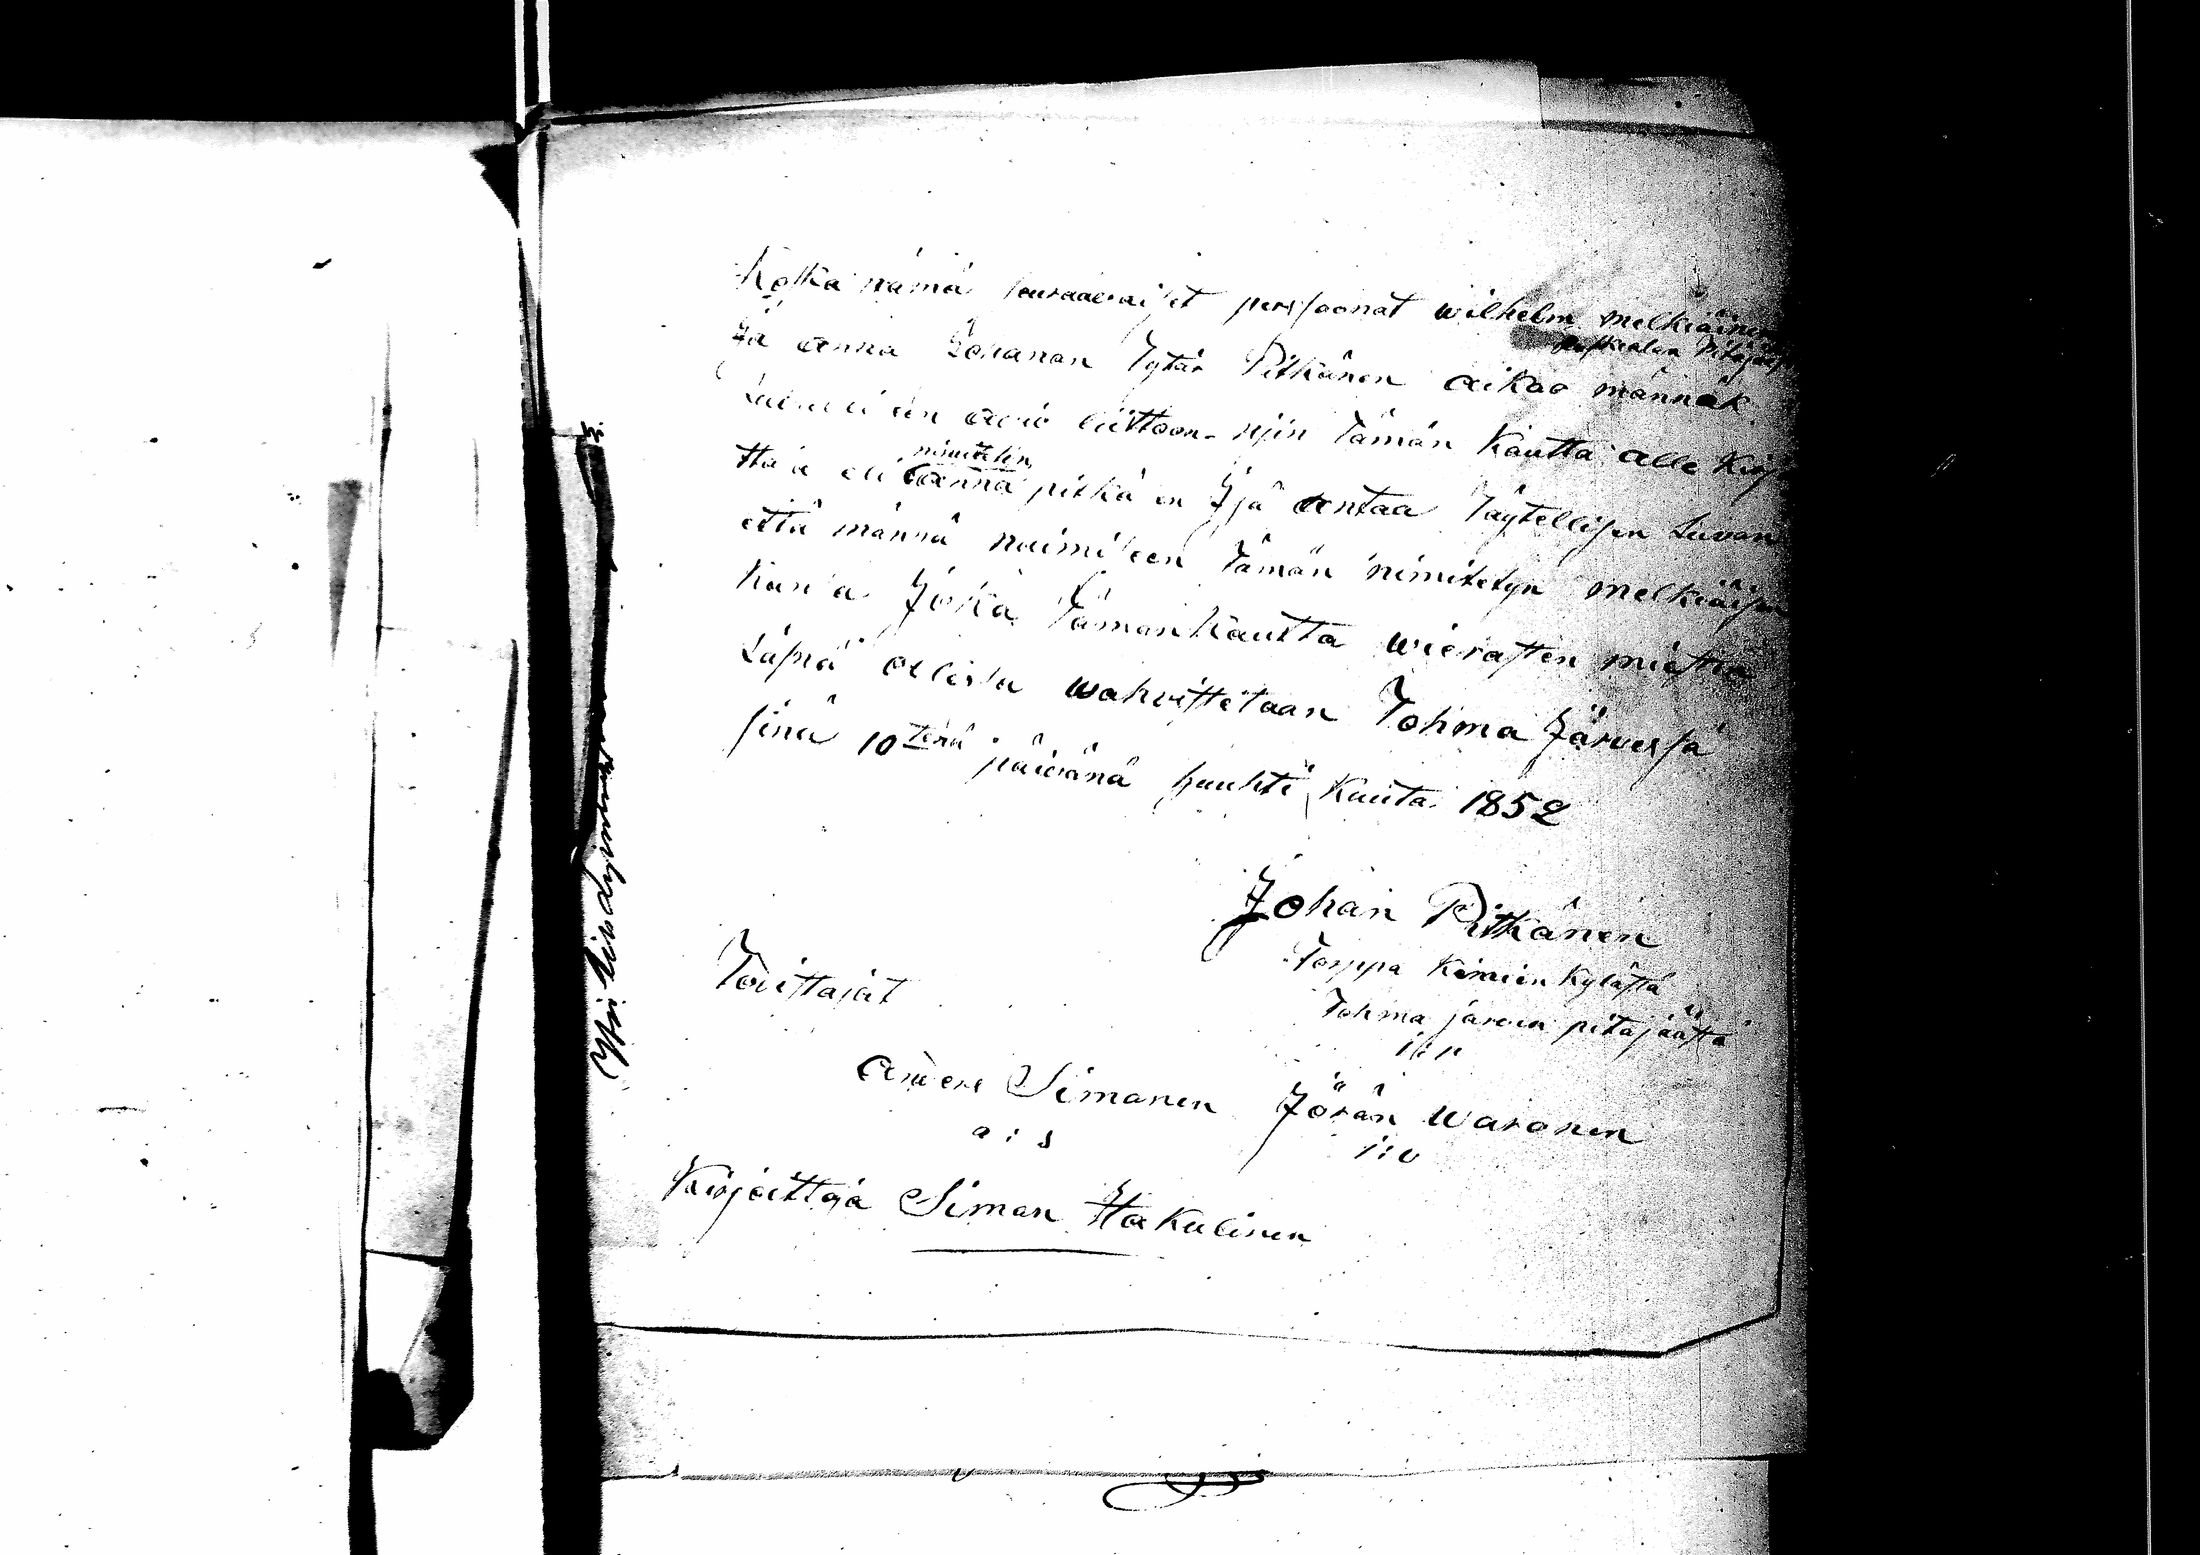 Koska nämä seuraavaiset persoonat wilhelm melkiäinen
Ruskealan Pitäjäst
Ja anna Johanan Tytär Pitkänen aikoo männäk
aviö liittoon niin Tämän kautta alle kirj
nimitetin
anna pitkä en Jjä antaa Täytellisen Luvan
että männä naimiseen Tämän nimitetyn melkiäisen
Kansa Joka Tämän kautta wierasten miesten
Läsnä ollesa wahvistetaan Tohma Järvesä
sinä 10tenä päivänä huhti kuuta 1852
Johan Pitkänen
Torppa Kemien kylästä
Tohma järven pitäjäästä
Toistajat
Anders Simanen Jörän Waronen
a : s
Kirjoittaja Siman Hakulinen